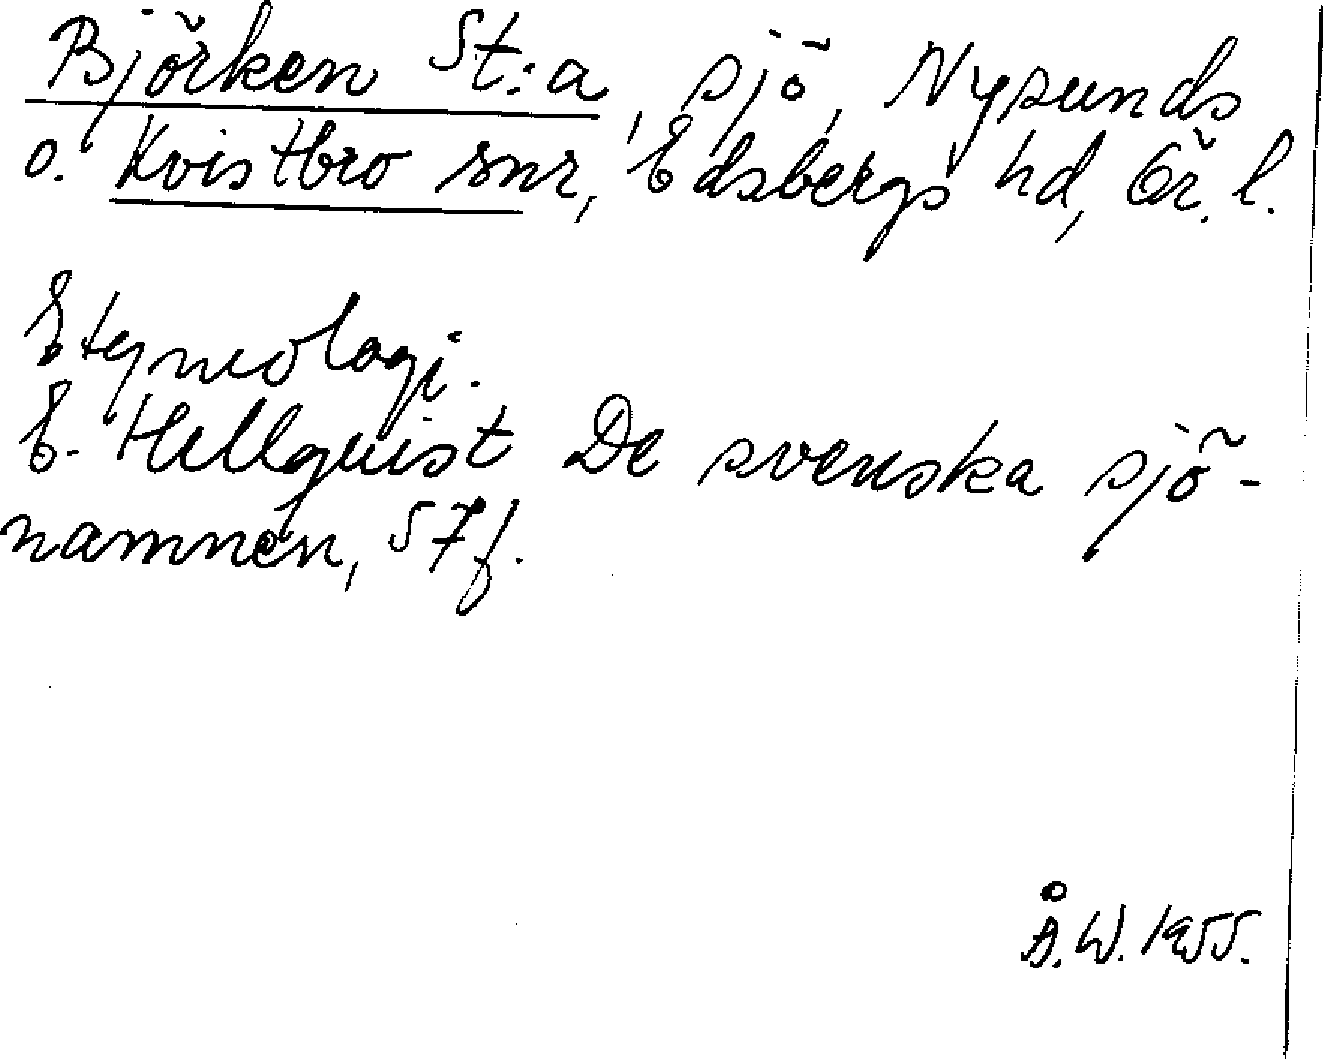 Björken St:a, sjö, Nysunds
o. Kvistbro snr, Edsbergs hd, Ör. l.
Etymologi.
E. Hellquist De svenska sjö-
namnen, 57 f.
Å.W. 1955.